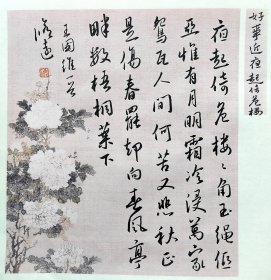 好事近 夜起倚危樓
夜起倚危樓〻角玉繩低
亞惟有月明霜冷浸萬家
鴛瓦人間何苦又悲秋正
是傷春罷却向春風亭
畔數梧桐葉下
王國維